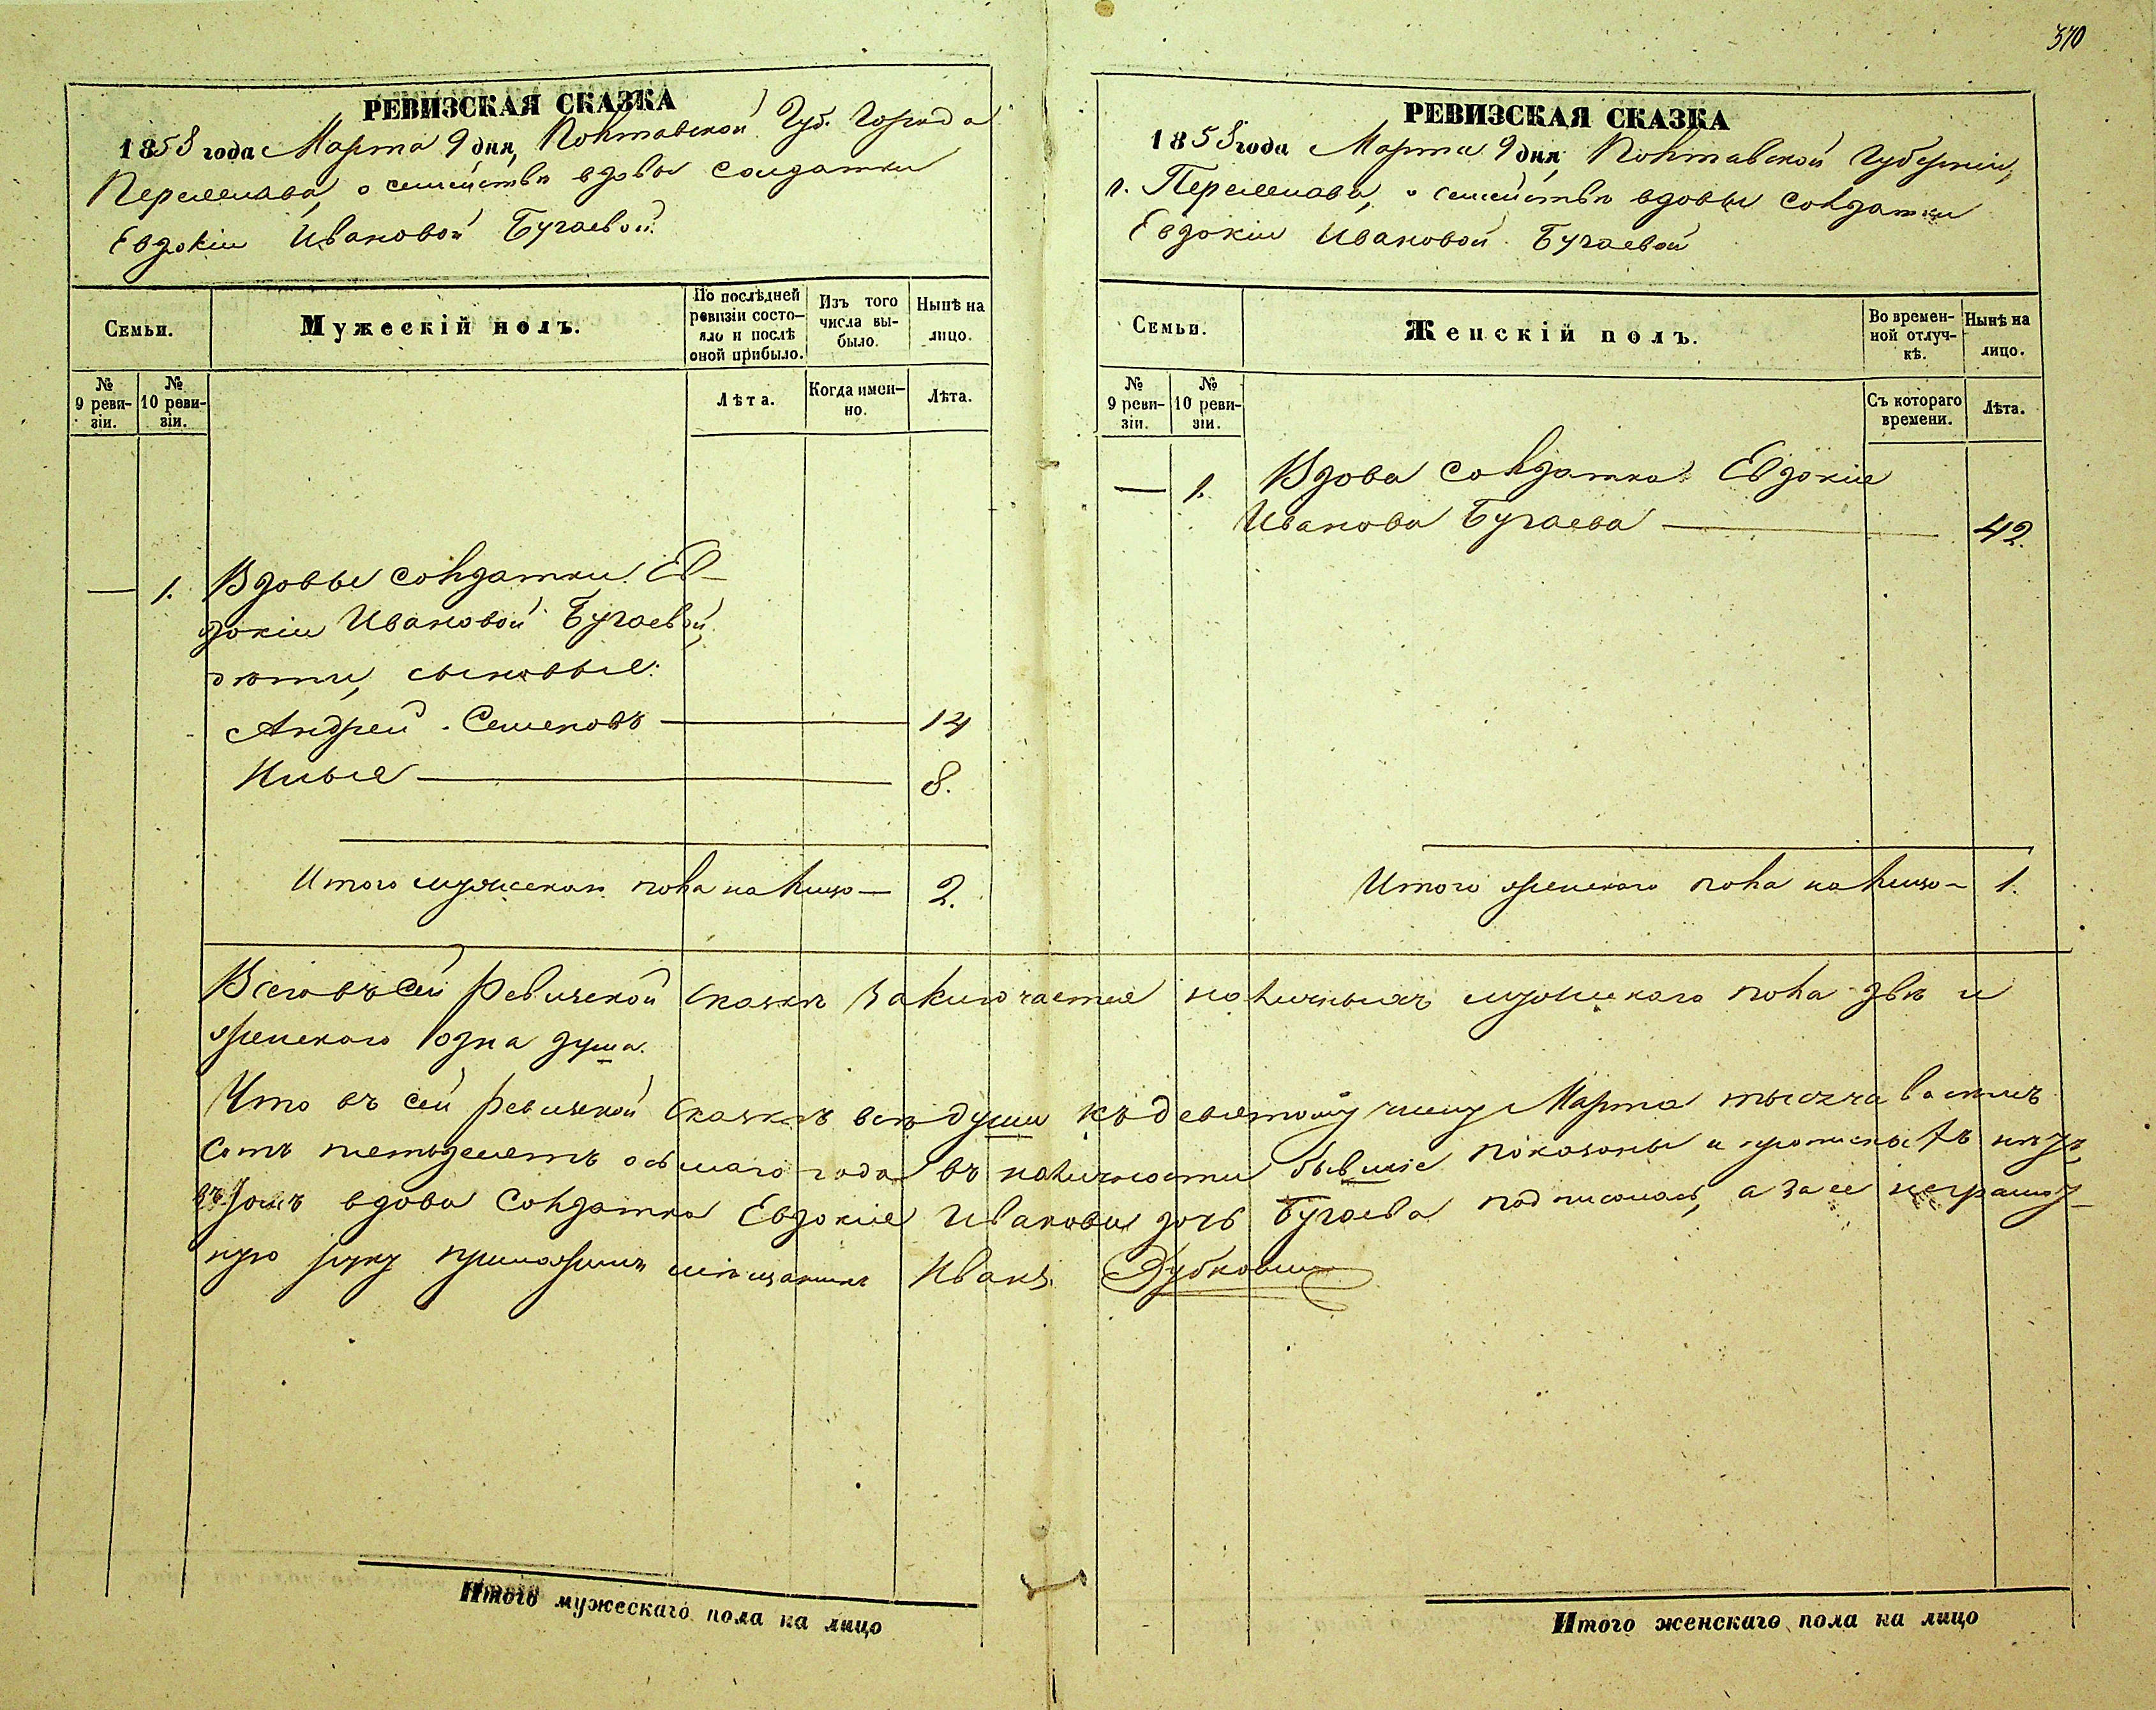 370
РЕВИЗСКАЯ СКАЗКА
1858 года Марта 9 дня, Полтавской Губ. Города
Переяслава, о семействѣ вдовы солдатки
Евдокіи Ивановой Бугаевой.
Семьи.
Мужескій полъ.
По послѣдней
ревизіи состо-
яло и послѣ
оной прибыло.
Изъ того
числа вы-
было.
Нынѣ на
лицо.
№
9 реви-
зіи.
№
10 реви-
зіи.
Лѣта.
Когда имен-
но.
Лѣта.
— 1. Вдовы солдатки Ев-
докіи Ивановой Бугаевой,
дѣти, сыновья:
Андрей Семеновъ — 14
Илья — 8.
Итого мужескаго пола на лицо — 2.
РЕВИЗСКАЯ СКАЗКА
1858 года Марта 9 дня Полтавской Губерніи,
г. Переяслава, о семействѣ вдовы солдатки
Евдокіи Ивановой Бугаевой
Семьи.
Женскій полъ.
Во времен-
ной отлуч-
кѣ.
Нынѣ на
лицо.
№
9 реви-
зіи.
№
10 реви-
зіи.
Съ котораго
времени.
Лѣта.
— 1. Вдова солдатка Евдокія
Иванова Бугаева — 42.
Итого женскаго пола на лицо — 1.
Всего въ сей ревизской сказкѣ заключается наличныхъ мужескаго пола двѣ и
женскаго одна душа.
Что въ сей ревизской сказкѣ всѣ души къ девятому числу Марта тысяча восемь
сотъ пятьдесятъ осьмаго года въ наличности бывшіе показаны и прописныхъ нѣтъ,
въ томъ вдова солдатка Евдокія Иванова дочь Бугаева подписалась, а за ее неграмот-
ную руку приложилъ мѣщанинъ Иванъ
Итого мужескаго пола на лицо
Итого женскаго пола на лицо